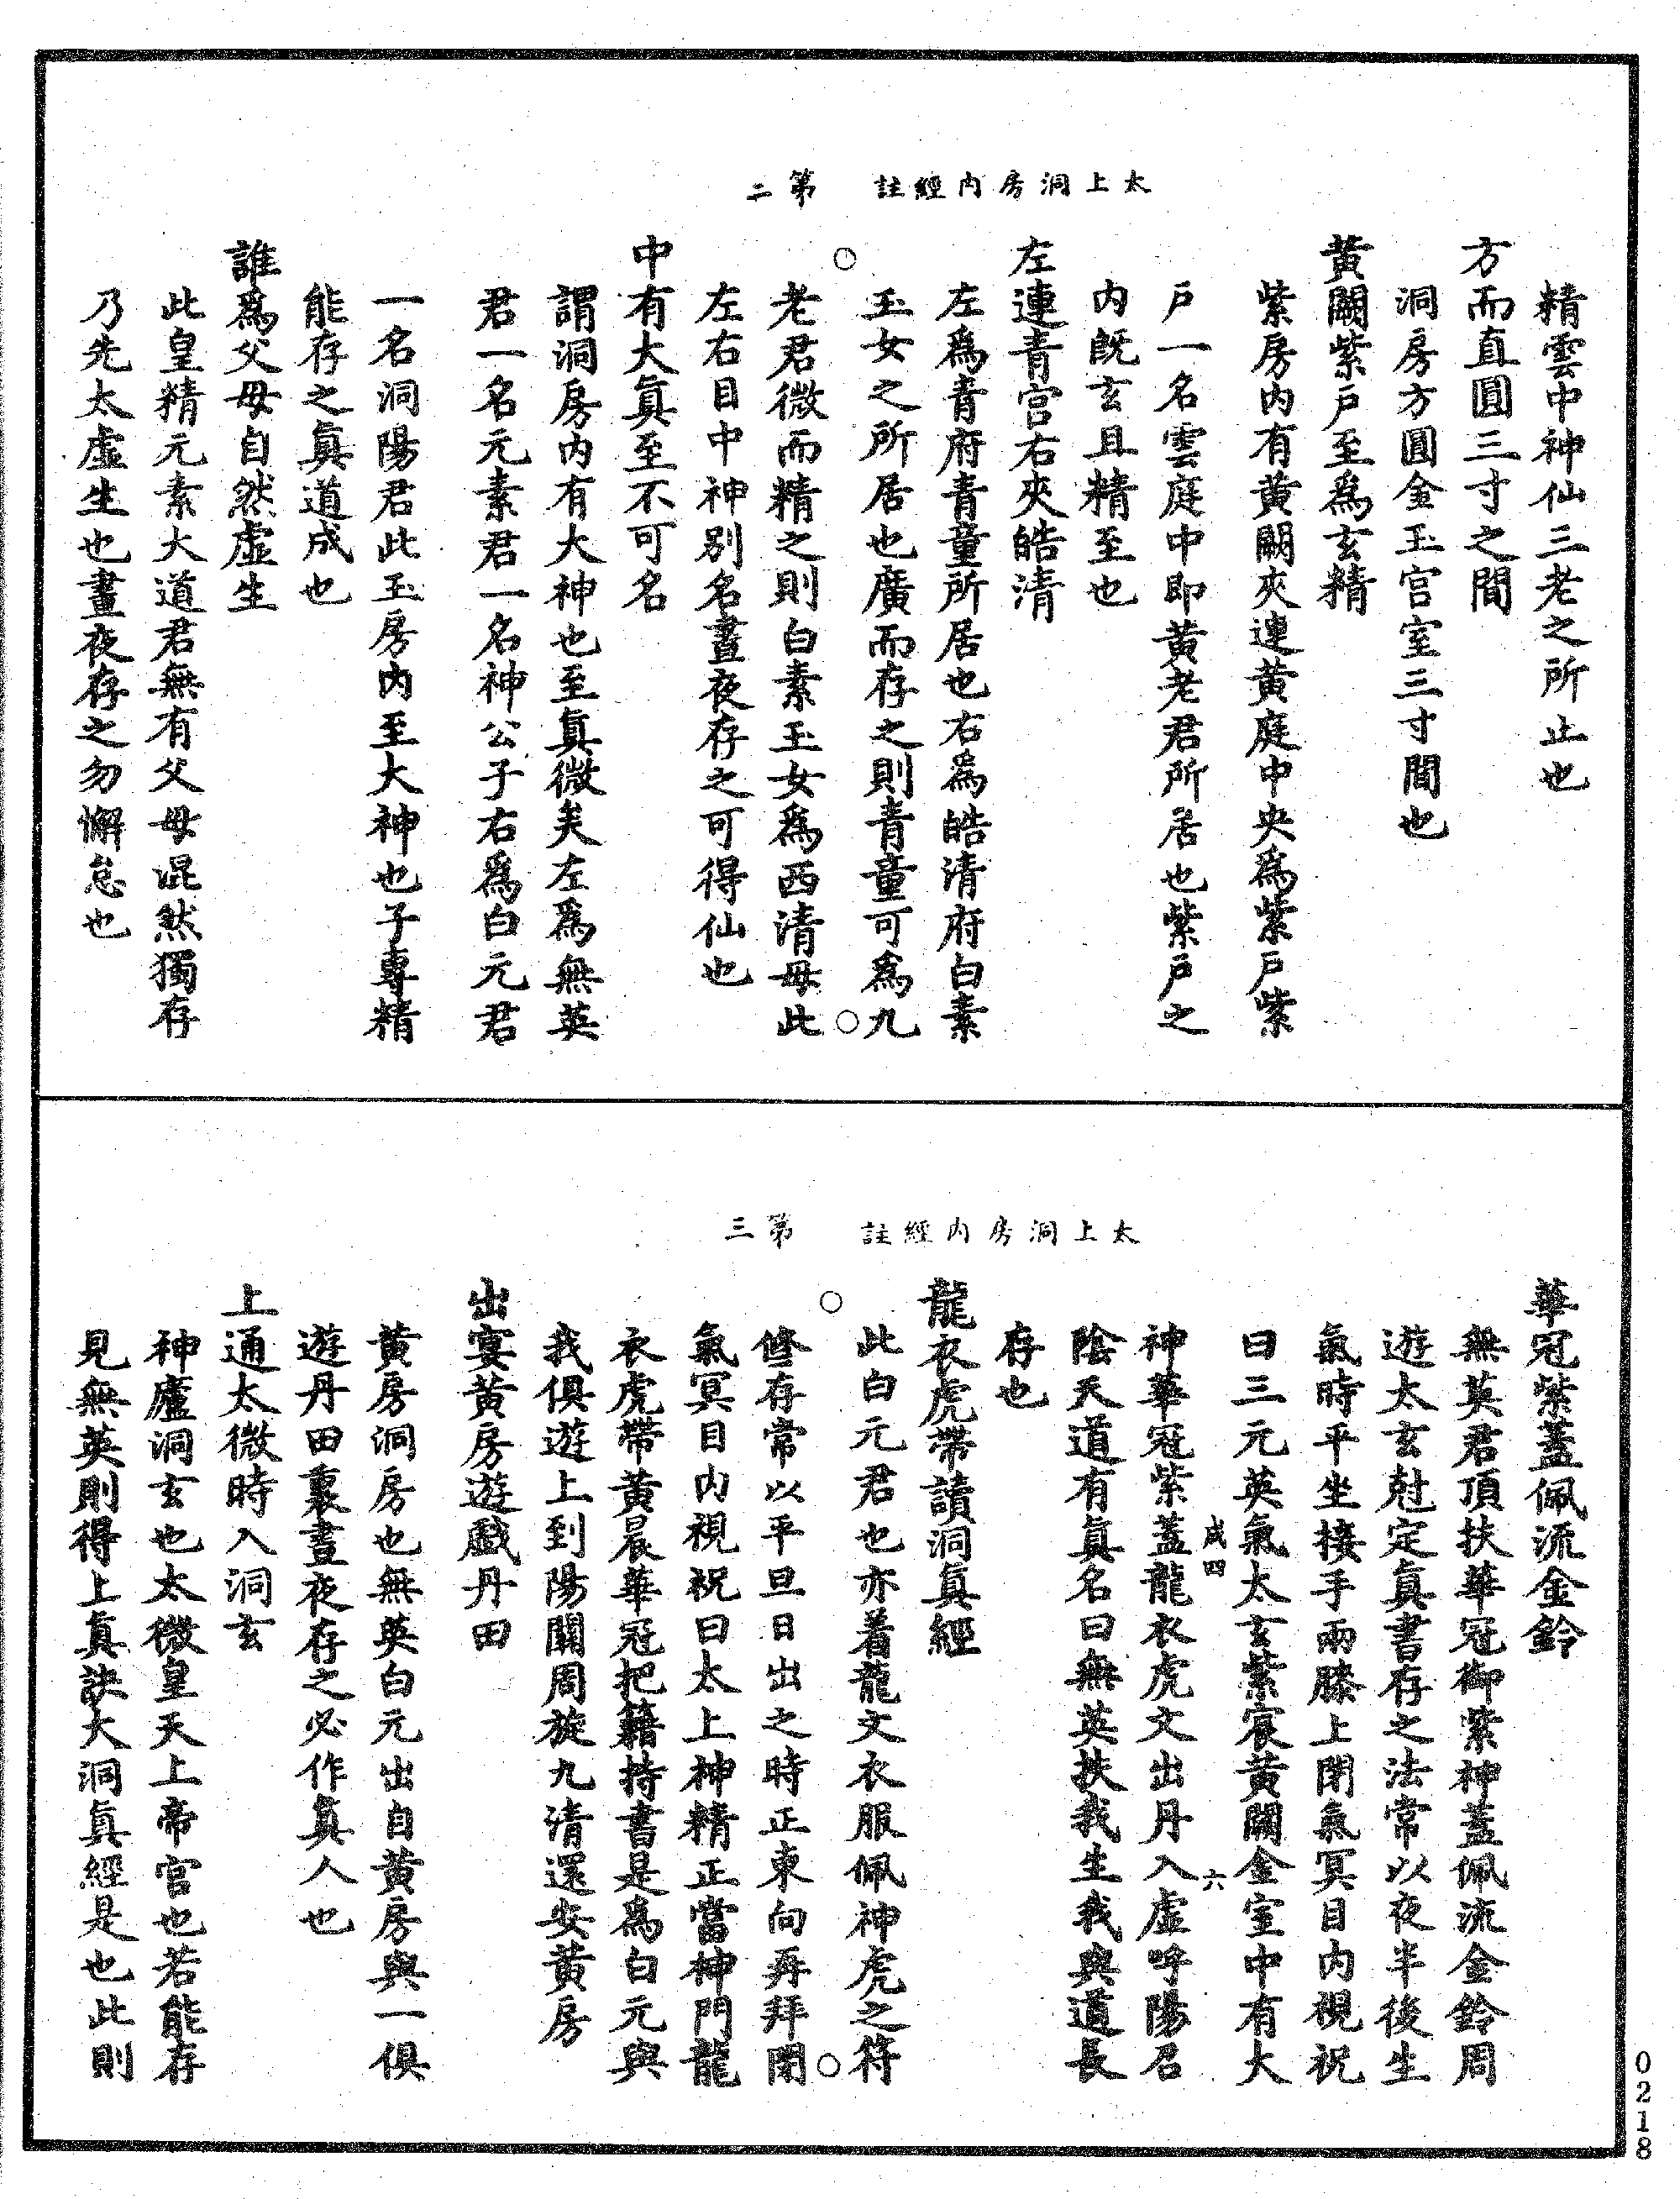 太上洞房內經註　第二
精雲中神仙三老之所止也
方而直圓三寸之間
洞房方圓金玉宮室三寸間也
黃闕紫戶至爲玄精
紫房內有黃闕夾連黃庭中央爲紫戶紫
戶一名雲庭中即黃老君所居也紫戶之
內旣玄且精至也
左連青宮右夾皓清
左爲青府青童所居也右爲皓清府白素
玉女之所居也廣而存之則青童可爲九
老君微而精之則白素玉女爲西清母此
左右目中神別名晝夜存之可得仙也
中有大眞至不可名
謂洞房內有大神也至眞微矣左爲無英
君一名元素君一名神公子右爲白元君
一名洞陽君此玉房內至大神也子專精
能存之眞道成也
誰爲父母自然虛生
此皇精元素大道君無有父母混然獨存
乃先太虛生也晝夜存之勿懈怠也
太上洞房內經註　第三
華冠紫蓋佩流金鈴
無英君頂扶華冠御紫神蓋佩流金鈴周
遊太玄尅定眞書存之法常以夜半後生
氣時平坐接手兩膝上閉氣冥目內視祝
曰三元英氣太玄紫宸黃闕金室中有大
咸四　六
神華冠紫蓋龍衣虎文出丹入虛呼陽召
陰天道有眞名曰無英扶我生我與道長
存也
龍衣虎帶讀洞眞經
此白元君也亦着龍文衣服佩神虎之符
修存常以平旦日出之時正東向再拜閉
氣冥目內視祝曰太上神精正當神門龍
衣虎帶黃晨華冠把籍持書是爲白元與
我俱遊上到陽關周旋九清還安黃房
出宴黃房遊戲丹田
黃房洞房也無英白元出自黃房與一俱
遊丹田裏晝夜存之必作眞人也
上通太微時入洞玄
神廬洞玄也太微皇天上帝宮也若能存
見無英則得上眞訣大洞眞經是也此則
0218